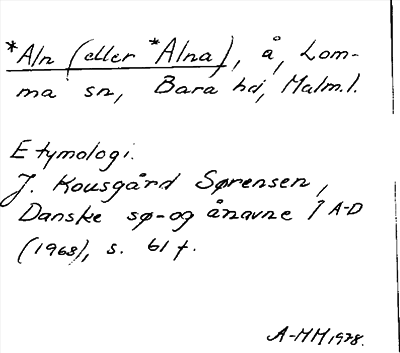 *Aln (eller *Alna), å, Lom-
ma sn, Bara hd, Malm.l.
Etymologi.
J. Kousgård Sørensen,
Danske sø- og ånavne I A-D
(1968), s. 61 f.
A-MM 1978.